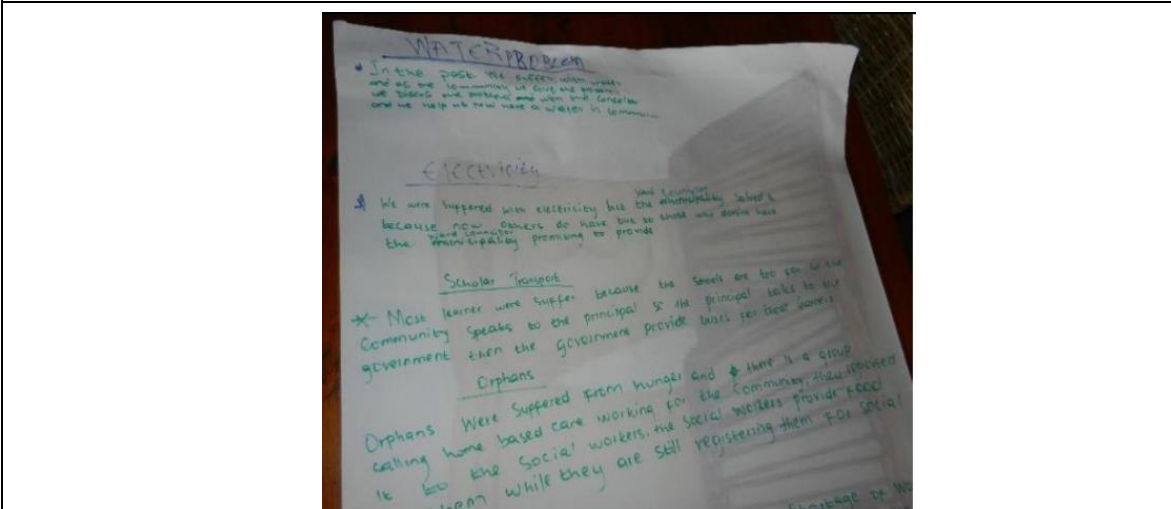 WATER PROBLEM
* In the past we suffer with water
and as the community we give the
we discus our problems and with the councelor
and we help us now have a water in
Electricity
* We were suppered with electricity but the ward councelor municipality solved it
because now others do have but to those who donine have
the ward councelor municipality promising to provide
Scholar Transport
* Most learner were suffer because the are too far so the
Community speaks to the principal & the principal talks to the
government then the government provide buses for their
Orphans
Orphans Were suppered from hunger and there is a group
calling home based care working for the Community, they reported
it to the social workers, the social workers provide food
them while they are still registering them for social
Shortage of